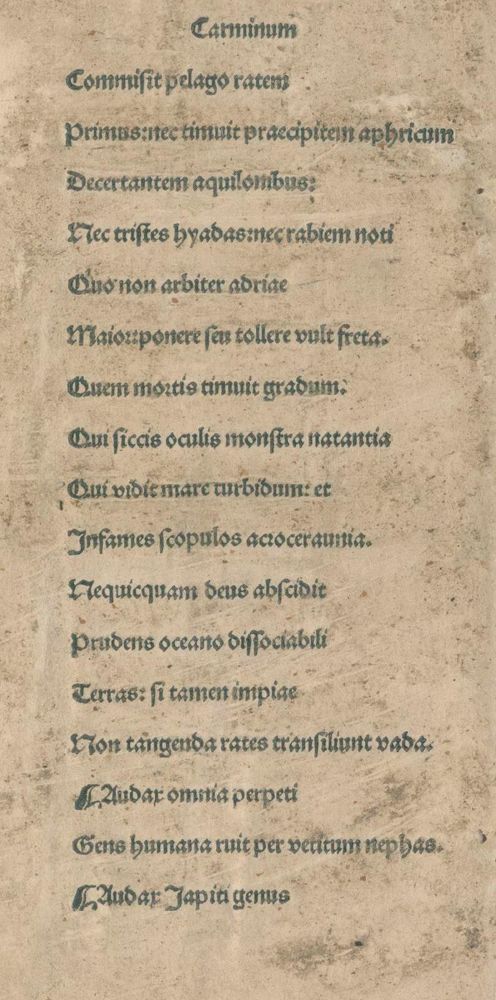 Carminum
Commisit pelago ratem
Primus:nec timuit praecipitem aphricum
Decertantem aquilonibus:
Nec tristes hyadas:nec rabiem noti
Quo non arbiter adriae
Maior:ponere seu tollere vult freta.
Quem mortis timuit gradum:
Qui siccis oculis monstra natantia
Qui vidit mare turbidum: et
Infames scopulos acroceraunia.
Nequicquam deus abscidit
Prudens oceano dissociabili
Terras: si tamen impiae
Non tangenda rates transiliunt vada.
Audax omnia perpeti
Gens humana ruit per vetitum nephas.
Audax Japiti genus